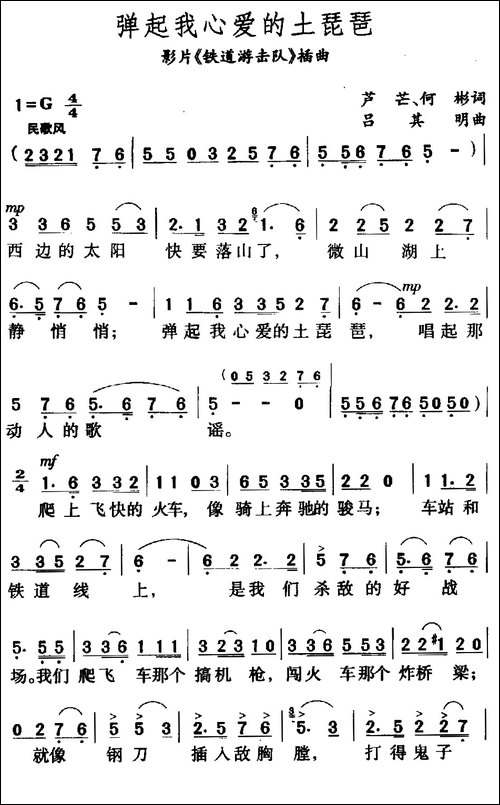 弹起我心爱的土琵琶
影片《铁道游击队》插曲
1=G 4/4
芦芒、何彬词
民歌风
吕其明曲
(2321 76 | 5503 2576 | 5 556 765 - )|
mp
3 365 553 | 2·132 6 1·6 | 2252 227 |
西边的太阳 快要落山了， 微山湖上
6·5765 - | 116 33527 | 6 - 622·2 |
mp
静悄悄； 弹起我心爱的土琵琶， 唱起那
(053276)
576 5·676 | 5 - - 0 | 556 765050)|
动人的歌 谣。
2/4 mf
1·6 332 | 1103 | 65335 | 220 | 11·2 |
爬上飞快的火车，像骑上奔驰的骏马； 车站和
3 3527 | 6 - | 622·2 | 576 | 5·676 |
铁道线上， 是我们杀敌的好战
5·55 | 336 111 | 323 1·3 | 336 553 | 22#1 20 |
场。我们爬飞车那个搞机枪，闯火车那个炸桥梁；
0276 | 5 5 | 2·576 | 3 5·3 | 2·5 227 |
就像钢刀插入敌胸膛， 打得鬼子